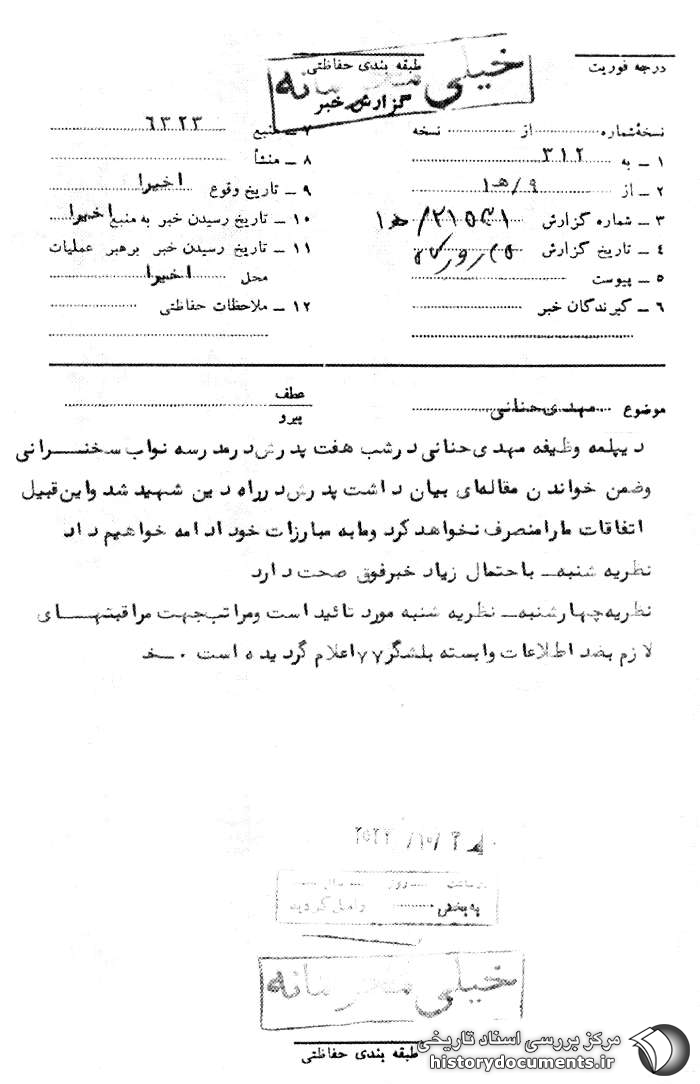 درجه فوریت
طبقه بندی حفاظتی
خیلی محرمانه
گزارش خبر
نسخه‌شماره از نسخه
۱ ــ به ۳۱۲
۲ ــ از ۹/هـ۱
۳ ــ شماره گزارش
۴ ــ تاریخ گزارش
۵ ــ پیوست
۶ ــ گیرندگان خبر
۷ ــ منبع ۶۳۲۳
۸ ــ منشأ
۹ ــ تاریخ وقوع اخیرا
۱۰ ــ تاریخ رسیدن خبر به منبع اخیرا
۱۱ ــ تاریخ رسیدن خبر برهبر عملیات
محل اخیرا
۱۲ ــ ملاحظات حفاظتی
موضوع مهدی حنانی
عطف
پیرو
دیپلمه وظیفه مهدی حنانی در شب هفت پدرش در مدرسه نواب سخنـــرانی
وضمن خواندن مقاله‌ای بیان داشت پدرش در راه دین شهید شد واین قبیل
اتفاقات ما را منصرف نخواهد کرد وما به مبارزات خود ادامه خواهیم داد
نظریه شنبه ــ با احتمال زیاد خبرفوق صحت دارد
نظریه چهارشنبه ــ نظریه شنبه مورد تائید است ومراتب جهت مراقبتهـــای
لازم بضد اطلاعات وابسته بلشگر ۷۷ اعلام گردیده است ۰ ــخـ
به بخش واصل گردید
خیلی محرمانه
طبقه بندی حفاظتی
مرکز بررسی اسناد تاریخی
historydocuments.ir